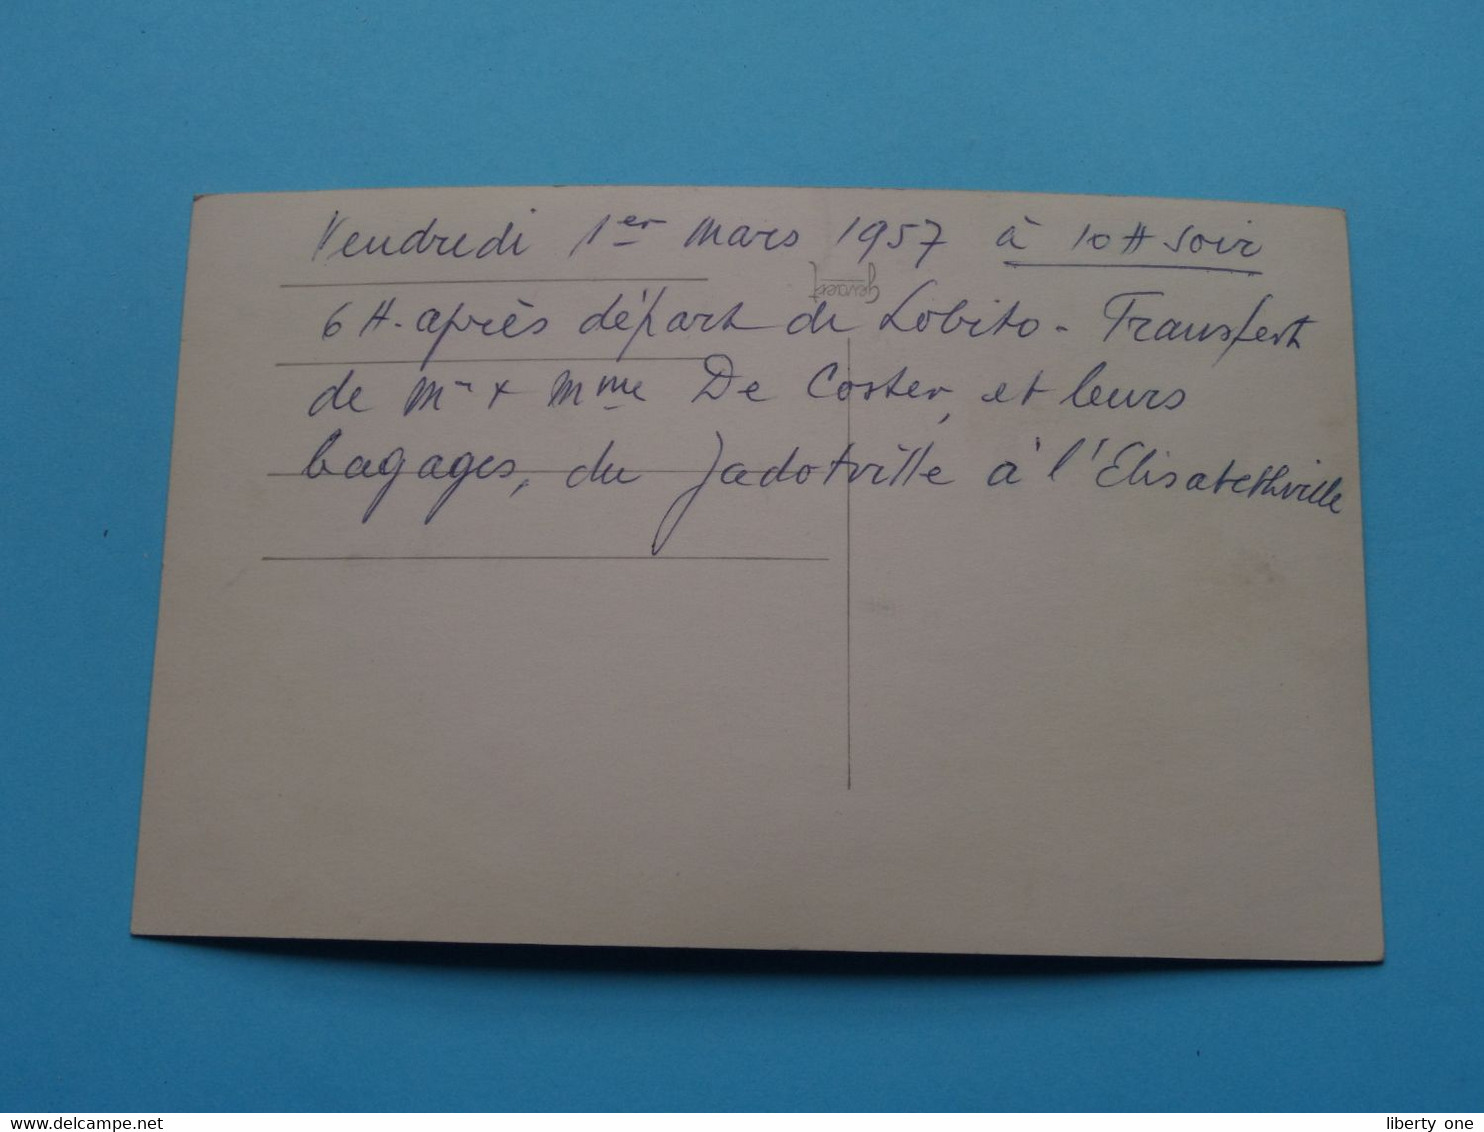 Vendredi 1er mars 1957 à 10 H soir
6 H. après départ de Lobito - Transfert
de Mr + Mme De Coster, et leurs
bagages, du Jadotville à l'Elisabethville
Gevaert
www.delcampe.net
liberty one